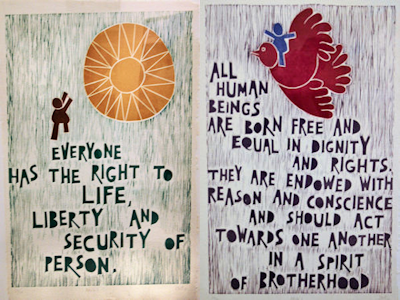 EVERYONE
HAS THE RIGHT TO
LIFE,
LIBERTY AND
SECURITY OF
PERSON.
ALL
HUMAN
BEINGS
ARE BORN FREE AND
EQUAL IN DIGNITY
AND RIGHTS.
THEY ARE ENDOWED WITH
REASON AND CONSCIENCE
AND SHOULD ACT
TOWARDS ONE ANOTHER
IN A SPIRIT
OF BROTHERHOOD